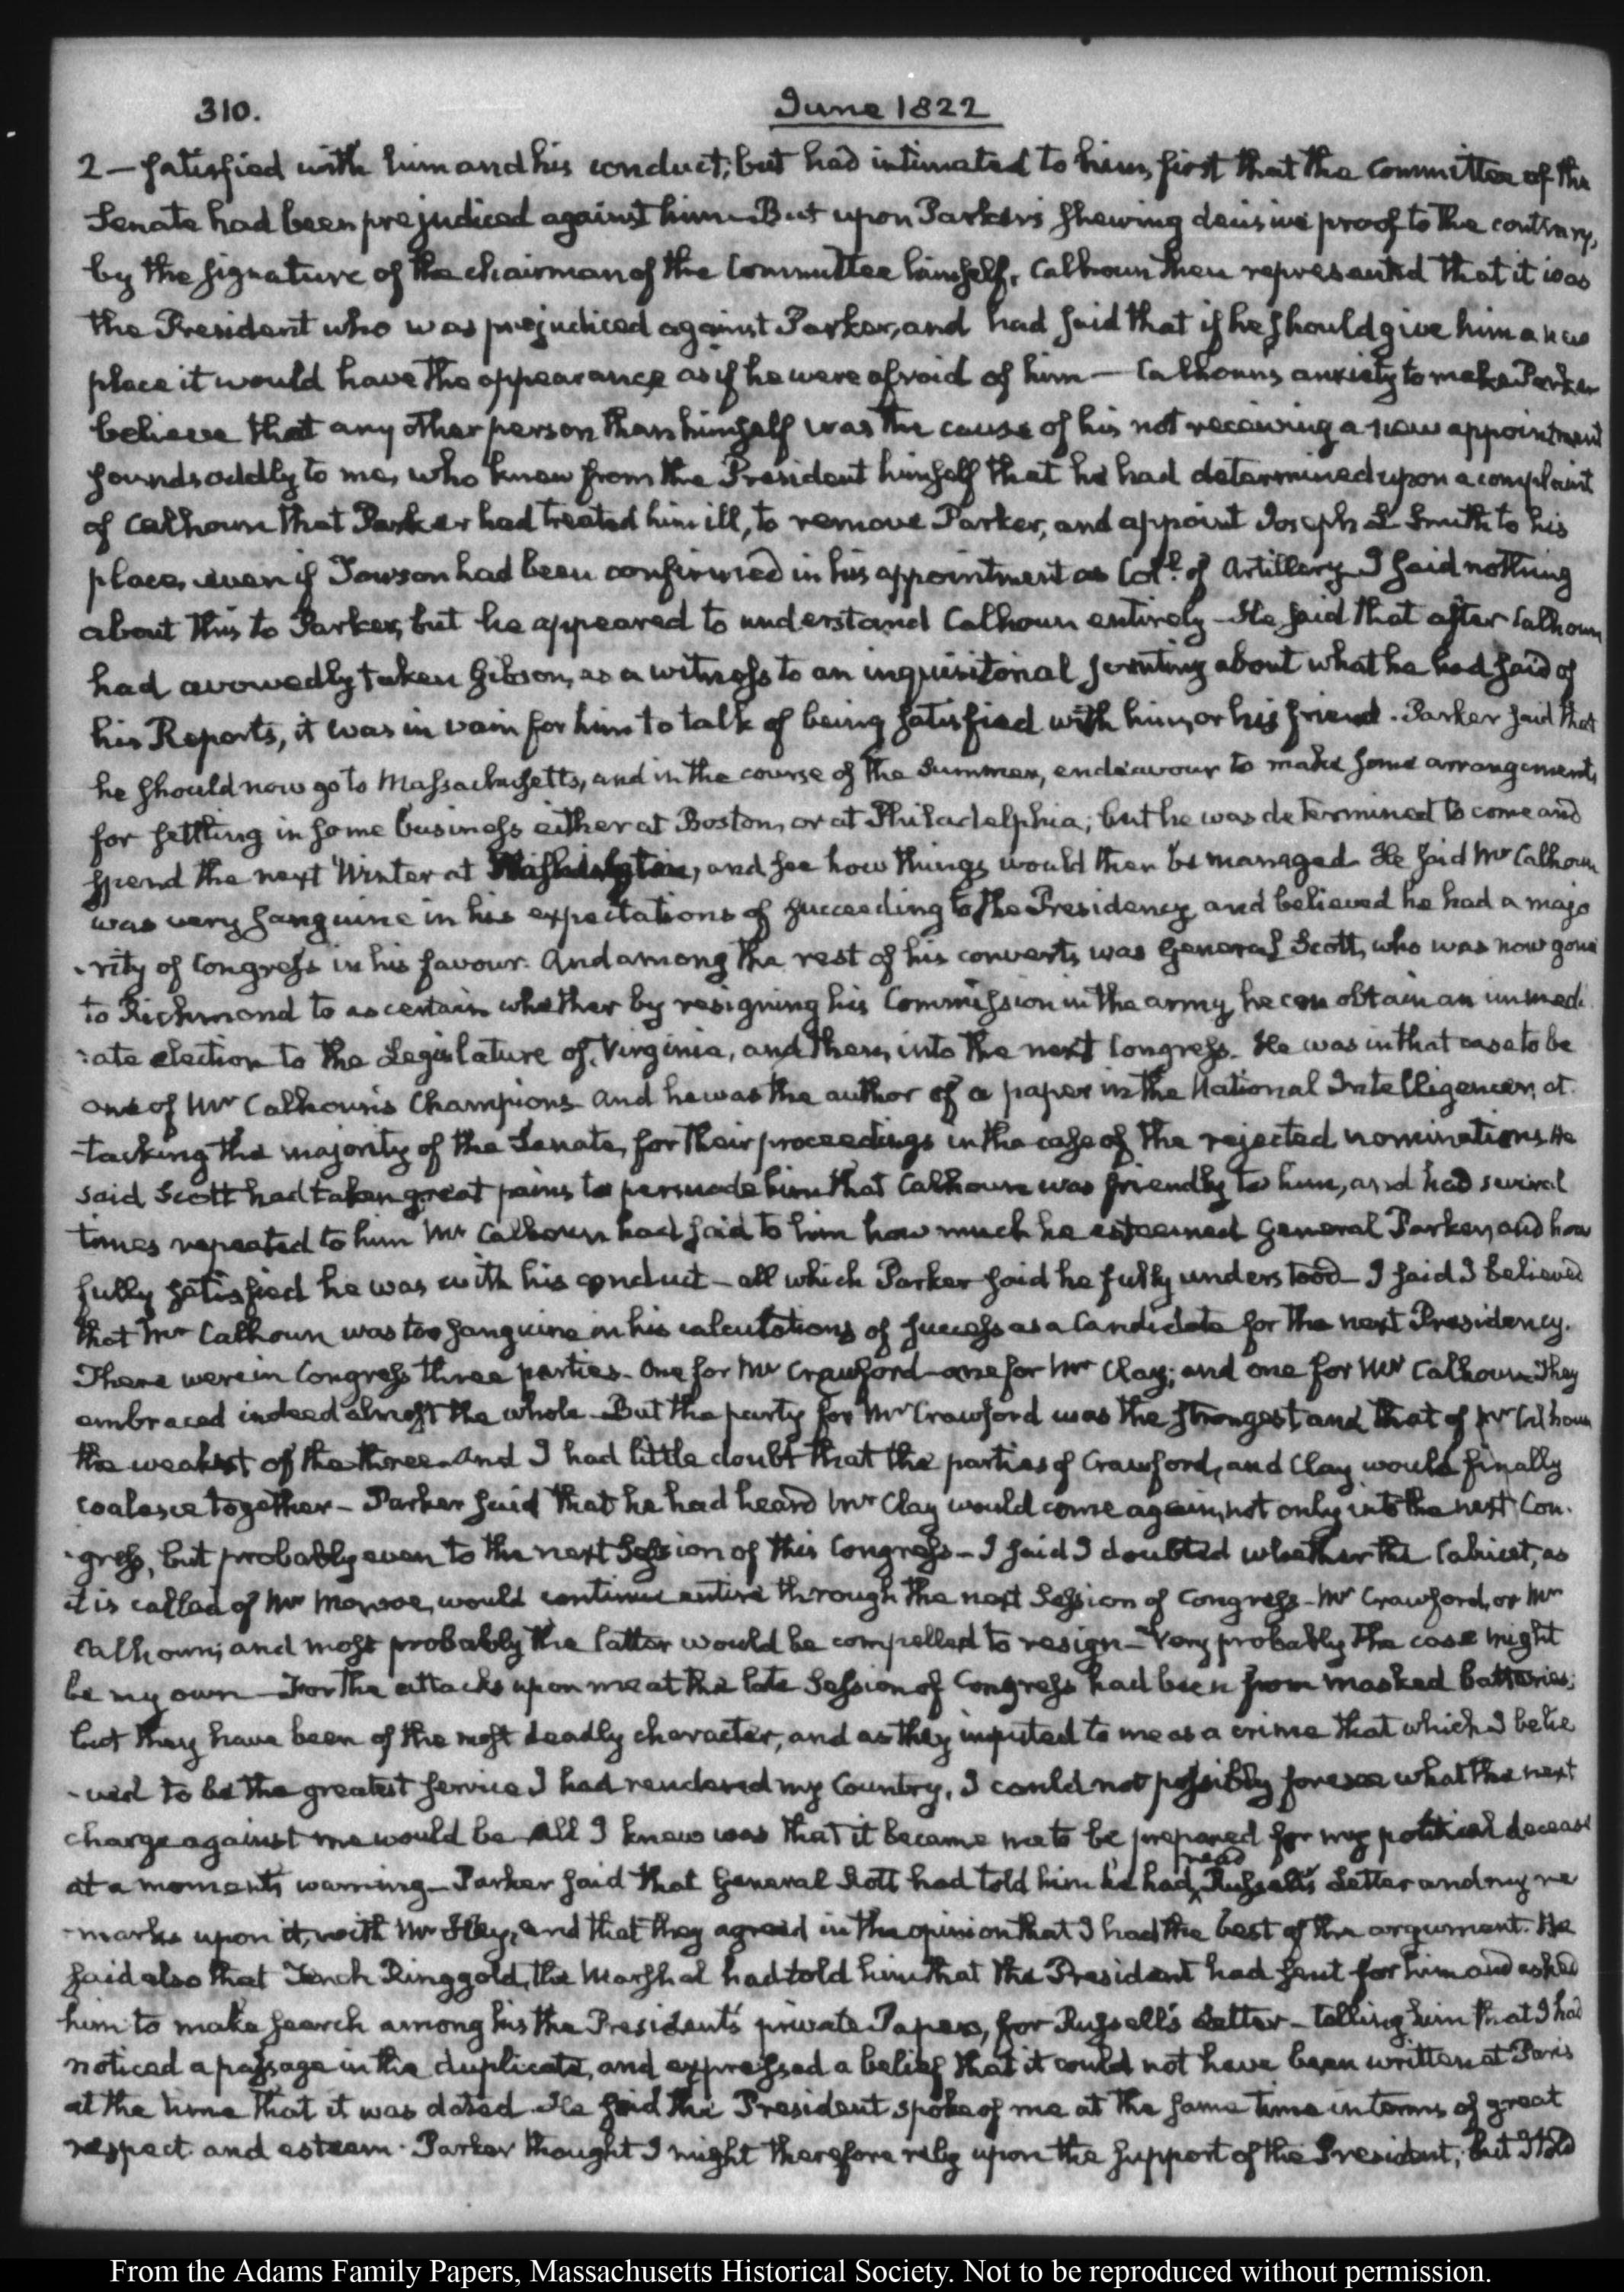 310.
June 1822
2 — satisfied with him and his conduct; but had intimated to him, first that the Committee of the
Senate had been prejudiced against him — But upon Parker's shewing decisive proof to the contrary,
by the signature of the chairman of the Committee himself, Calhoun then represented that it was
the President who was prejudiced against Parker, and had said that if he should give him a new
place it would have the appearance as if he were afraid of him — Calhoun's anxiety to make Parker
believe that any other person than himself was the cause of his not receiving a new appointment
sounds oddly to me, who knew from the President himself that he had determined upon a complaint
of Calhoun that Parker had treated him ill, to remove Parker, and appoint Joseph L Smith to his
place, even if Towson had been confirmed in his appointment as Coll. of Artillery — I said nothing
about this to Parker, but he appeared to understand Calhoun entirely — He said that after Calhoun
had avowedly taken Gibson, as a witness to an inquisitorial scrutiny about what he had said of
his Reports, it was in vain for him to talk of being satisfied with him, or his friend. Parker said that
he should now go to Massachusetts, and in the course of the Summer, endeavour to make some arrangements
for settling in some business either at Boston, or at Philadelphia; but he was determined to come and
spend the next Winter at Washington, and see how things would then be managed. He said Mr Calhoun
was very sanguine in his expectations of succeeding to the Presidency and believed he had a majo
-rity of Congress in his favour. And among the rest of his converts was General Scott, who was now gone
to Richmond to ascertain whether by resigning his Commission in the army, he can obtain an immedi
-ate election to the Legislature of Virginia, and then into the next Congress. He was in that case to be
one of Mr Calhoun's Champions and he was the author of a paper in the National Intelligencer, at
-tacking the majority of the Senate, for their proceedings in the case of the rejected nominations. He
said Scott had taken great pains to persuade him that Calhoun was friendly to him, and had several
times repeated to him Mr Calhoun had said to him how much he esteemed General Parker, and how
fully satisfied he was with his conduct — all which Parker said he fully understood — I said I believed
that Mr Calhoun was too sanguine in his calculations of success as a Candidate for the next Presidency.
There were in Congress three parties — One for Mr Crawford — one for Mr Clay; and one for Mr Calhoun. They
embraced indeed almost the whole — But the party for Mr Crawford was the strongest and that of Mr Calhoun
the weakest of the three — And I had little doubt that the parties of Crawford, and Clay would finally
coalesce together — Parker said that he had heard Mr Clay would come again, not only into the next Con-
-gress, but probably even to the next Session of this Congress — I said I doubted whether the Cabinet, as
it is called of Mr Monroe, would continue entire through the next Session of Congress — Mr Crawford, or Mr
Calhoun; and most probably the latter would be compelled to resign — Very probably the case might
be my own — For the attacks upon me at the late Session of Congress had been from masked batteries;
but they have been of the most deadly character, and as they imputed to me as a crime that which I belie
-ved to be the greatest service I had rendered my Country, I could not possibly foresee what the next
charge against me would be. All I knew was that it became me to be prepared for my political decease
at a moment's warning — Parker said that General Scott had told him he had read Russell's Letter and my re
-marks upon it, with Mr Hay, and that they agreed in the opinion that I had the best of the argument. He
said also that Tench Ringgold, the Marshal had told him that the President had sent for him and asked
him to make search among his the President's private Papers, for Russell's Letter — telling him that I had
noticed a passage in the duplicate, and expressed a belief that it could not have been written at Paris
at the time that it was dated. He said the President spoke of me at the same time in terms of great
respect and esteem. Parker thought I might therefore rely upon the support of the President; but I told
From the Adams Family Papers, Massachusetts Historical Society. Not to be reproduced without permission.